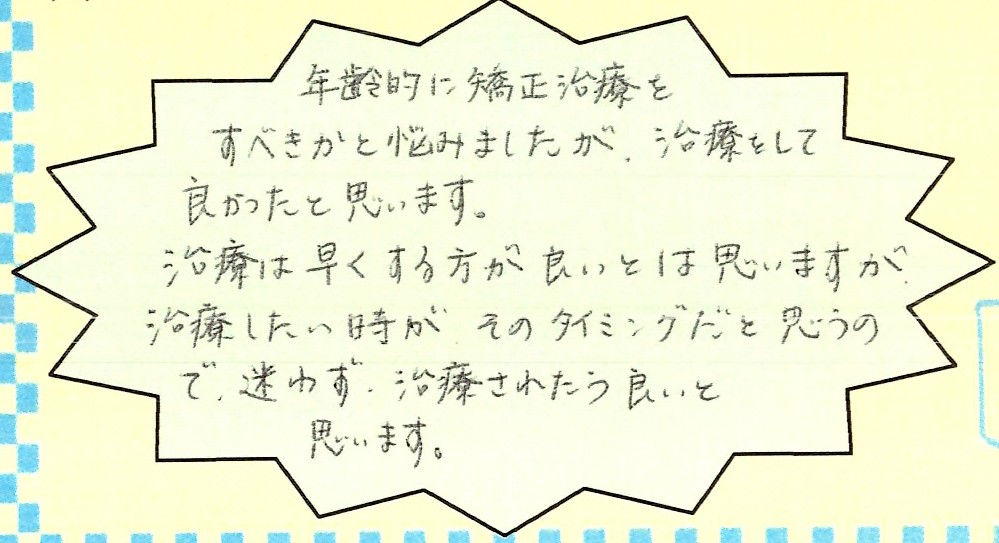 年齢的に矯正治療を
すべきかと悩みましたが、治療をして
良かったと思います。
治療は早くする方が良いとは思いますが、
治療したい時が そのタイミングだと思うの
で、迷わず、治療されたら良いと
思います。